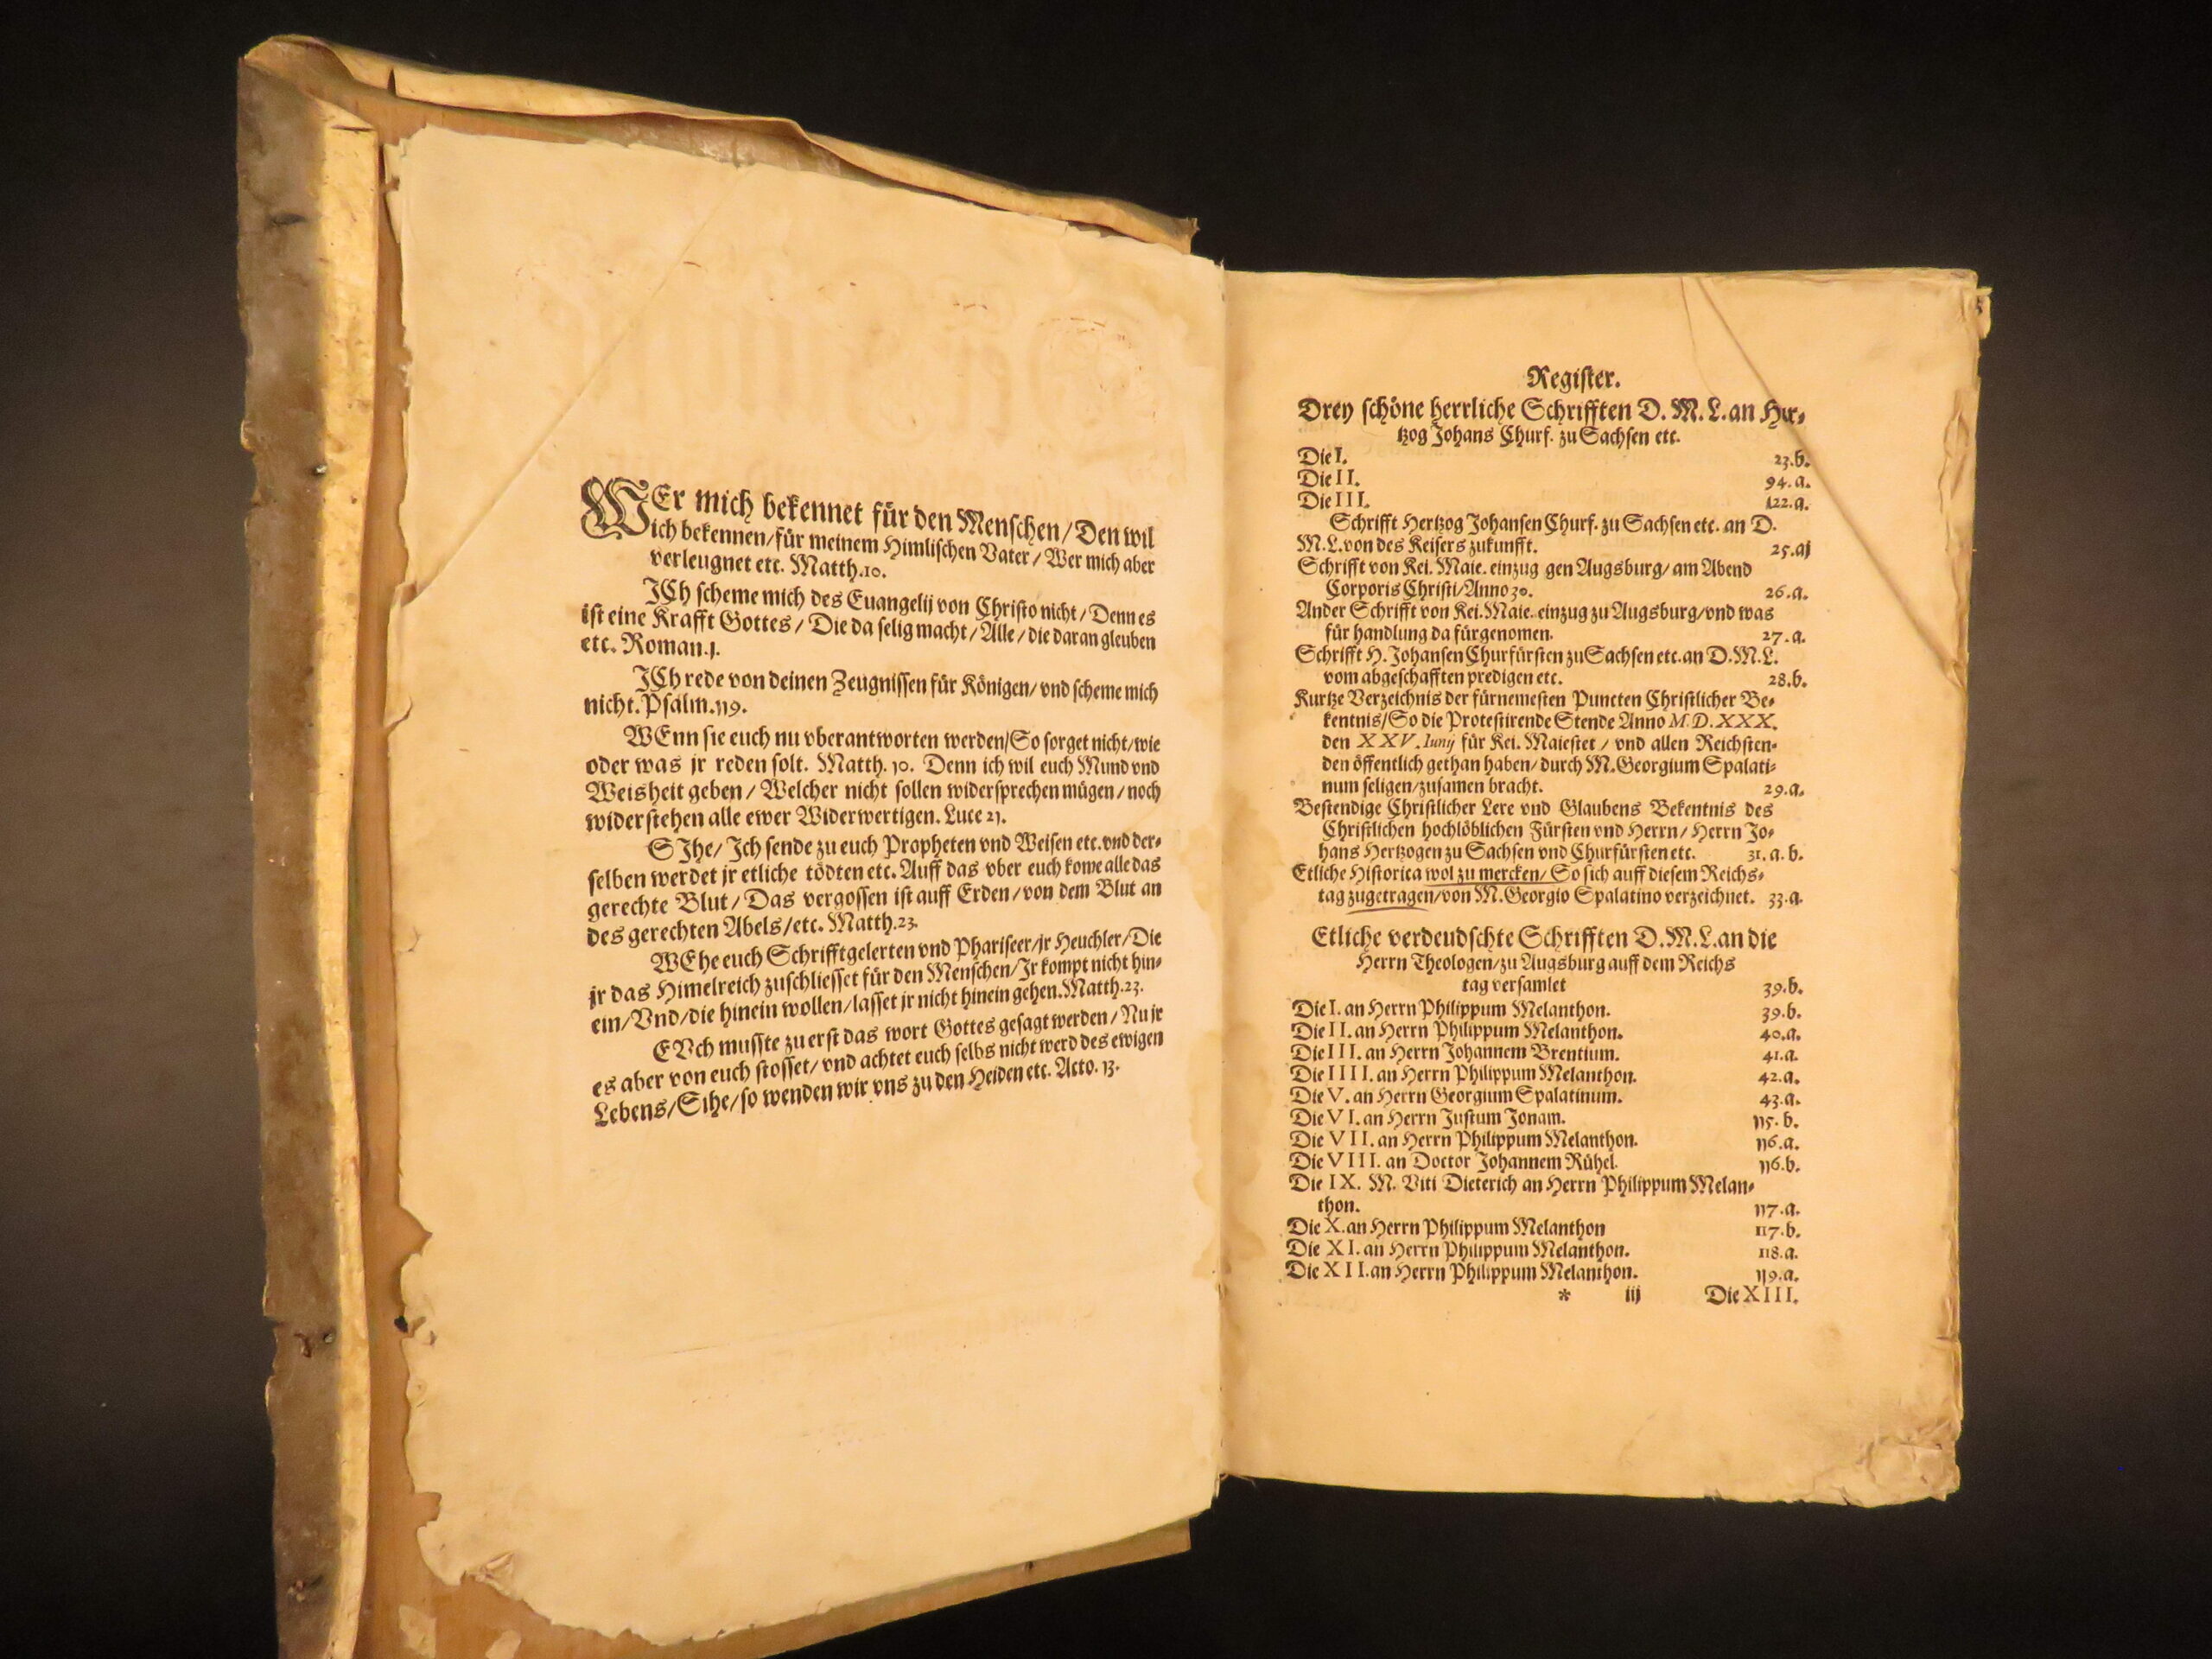 WEr mich bekennet für den Menschen/ Den wil
ich bekennen/ für meinem Himlischen Vater/ Wer mich aber
verleugnet etc. Matth.10.
ICh scheme mich des Euangelij von Christo nicht/ Denn es
ist eine Krafft Gottes/ Die da selig macht/ Alle/ die daran gleuben
etc. Roman.j.
ICh rede von deinen Zeugnissen für Königen/ vnd scheme mich
nicht. Psalm.119.
WEnn sie euch nu vberantworten werden/ So sorget nicht/ wie
oder was jr reden solt. Matth. 10. Denn ich wil euch Mund vnd
Weisheit geben/ Welcher nicht sollen widersprechen mügen/ noch
widerstehen alle ewer Widerwertigen. Luce 21.
SIhe/ Ich sende zu euch Propheten vnd Weisen etc. vnd der-
selben werdet jr etliche tödten etc. Auff das vber euch kome alle das
gerechte Blut/ Das vergossen ist auff Erden/ von dem Blut an
des gerechten Abels/ etc. Matth.23.
WEhe euch Schrifftgelerten vnd Phariseer/ jr Heuchler/ Die
jr das Himelreich zuschliesset für den Menschen/ Jr kompt nicht hin-
ein/ Vnd/ die hinein wollen/ lasset jr nicht hinein gehen. Matth.23.
EVch musste zu erst das wort Gottes gesagt werden/ Nu jr
es aber von euch stosset/ vnd achtet euch selbs nicht werd des ewigen
Lebens/ Sihe/ so wenden wir vns zu den Heiden etc. Acto. 13.
Register.
Drey schöne herrliche Schrifften D. M. L. an Her-
tzog Johans Churf. zu Sachsen etc.
Die I. 23.b.
Die II. 94.a.
Die III. 122.a.
Schrifft Hertzog Johansen Churf. zu Sachsen etc. an D.
M. L. von des Keisers zukunfft. 25.a
Schrifft von Kei. Maie. einzug gen Augsburg/ am Abend
Corporis Christi/ Anno 30. 26.a.
Ander Schrifft von Kei. Maie. einzug zu Augsburg/ vnd was
für handlung da fürgenomen. 27.a.
Schrifft H. Johansen Churfürsten zu Sachsen etc. an D. M. L.
vom abgeschafften predigen etc. 28.b.
Kurtze Verzeichnis der fürnemesten Puncten Christlicher Be-
kentnis/ So die Protestirende Stende Anno M. D. XXX.
den XXV. Iunij für Kei. Maiestet/ vnd allen Reichsten-
den öffentlich gethan haben/ durch M. Georgium Spalati-
num seligen/ zusamen bracht. 29.a.
Bestendige Christlicher Lere vnd Glaubens Bekentnis des
Christlichen hochlöblichen Fürsten vnd Herrn/ Herrn Jo-
hans Hertzogen zu Sachsen vnd Churfürsten etc. 31.a.b.
Etliche Historica wol zu mercken/ So sich auff diesem Reichs-
tag zugetragen/ von M. Georgio Spalatino verzeichnet. 33.a.
Etliche verdeudschte Schrifften D. M. L. an die
Herrn Theologen/ zu Augsburg auff dem Reichs
tag versamlet 39.b.
Die I. an Herrn Philippum Melanthon. 39.b.
Die II. an Herrn Philippum Melanthon. 40.a.
Die III. an Herrn Johannem Brentium. 41.a.
Die IIII. an Herrn Philippum Melanthon. 42.a.
Die V. an Herrn Georgium Spalatinum. 43.a.
Die VI. an Herrn Justum Jonam. 115.b.
Die VII. an Herrn Philippum Melanthon. 116.a.
Die VIII. an Doctor Johannem Rühel. 116.b.
Die IX. M. Viti Dieterich an Herrn Philippum Melan-
thon. 117.a.
Die X. an Herrn Philippum Melanthon 117.b.
Die XI. an Herrn Philippum Melanthon. 118.a.
Die XII. an Herrn Philippum Melanthon. 119.a.
* iij Die XIII.